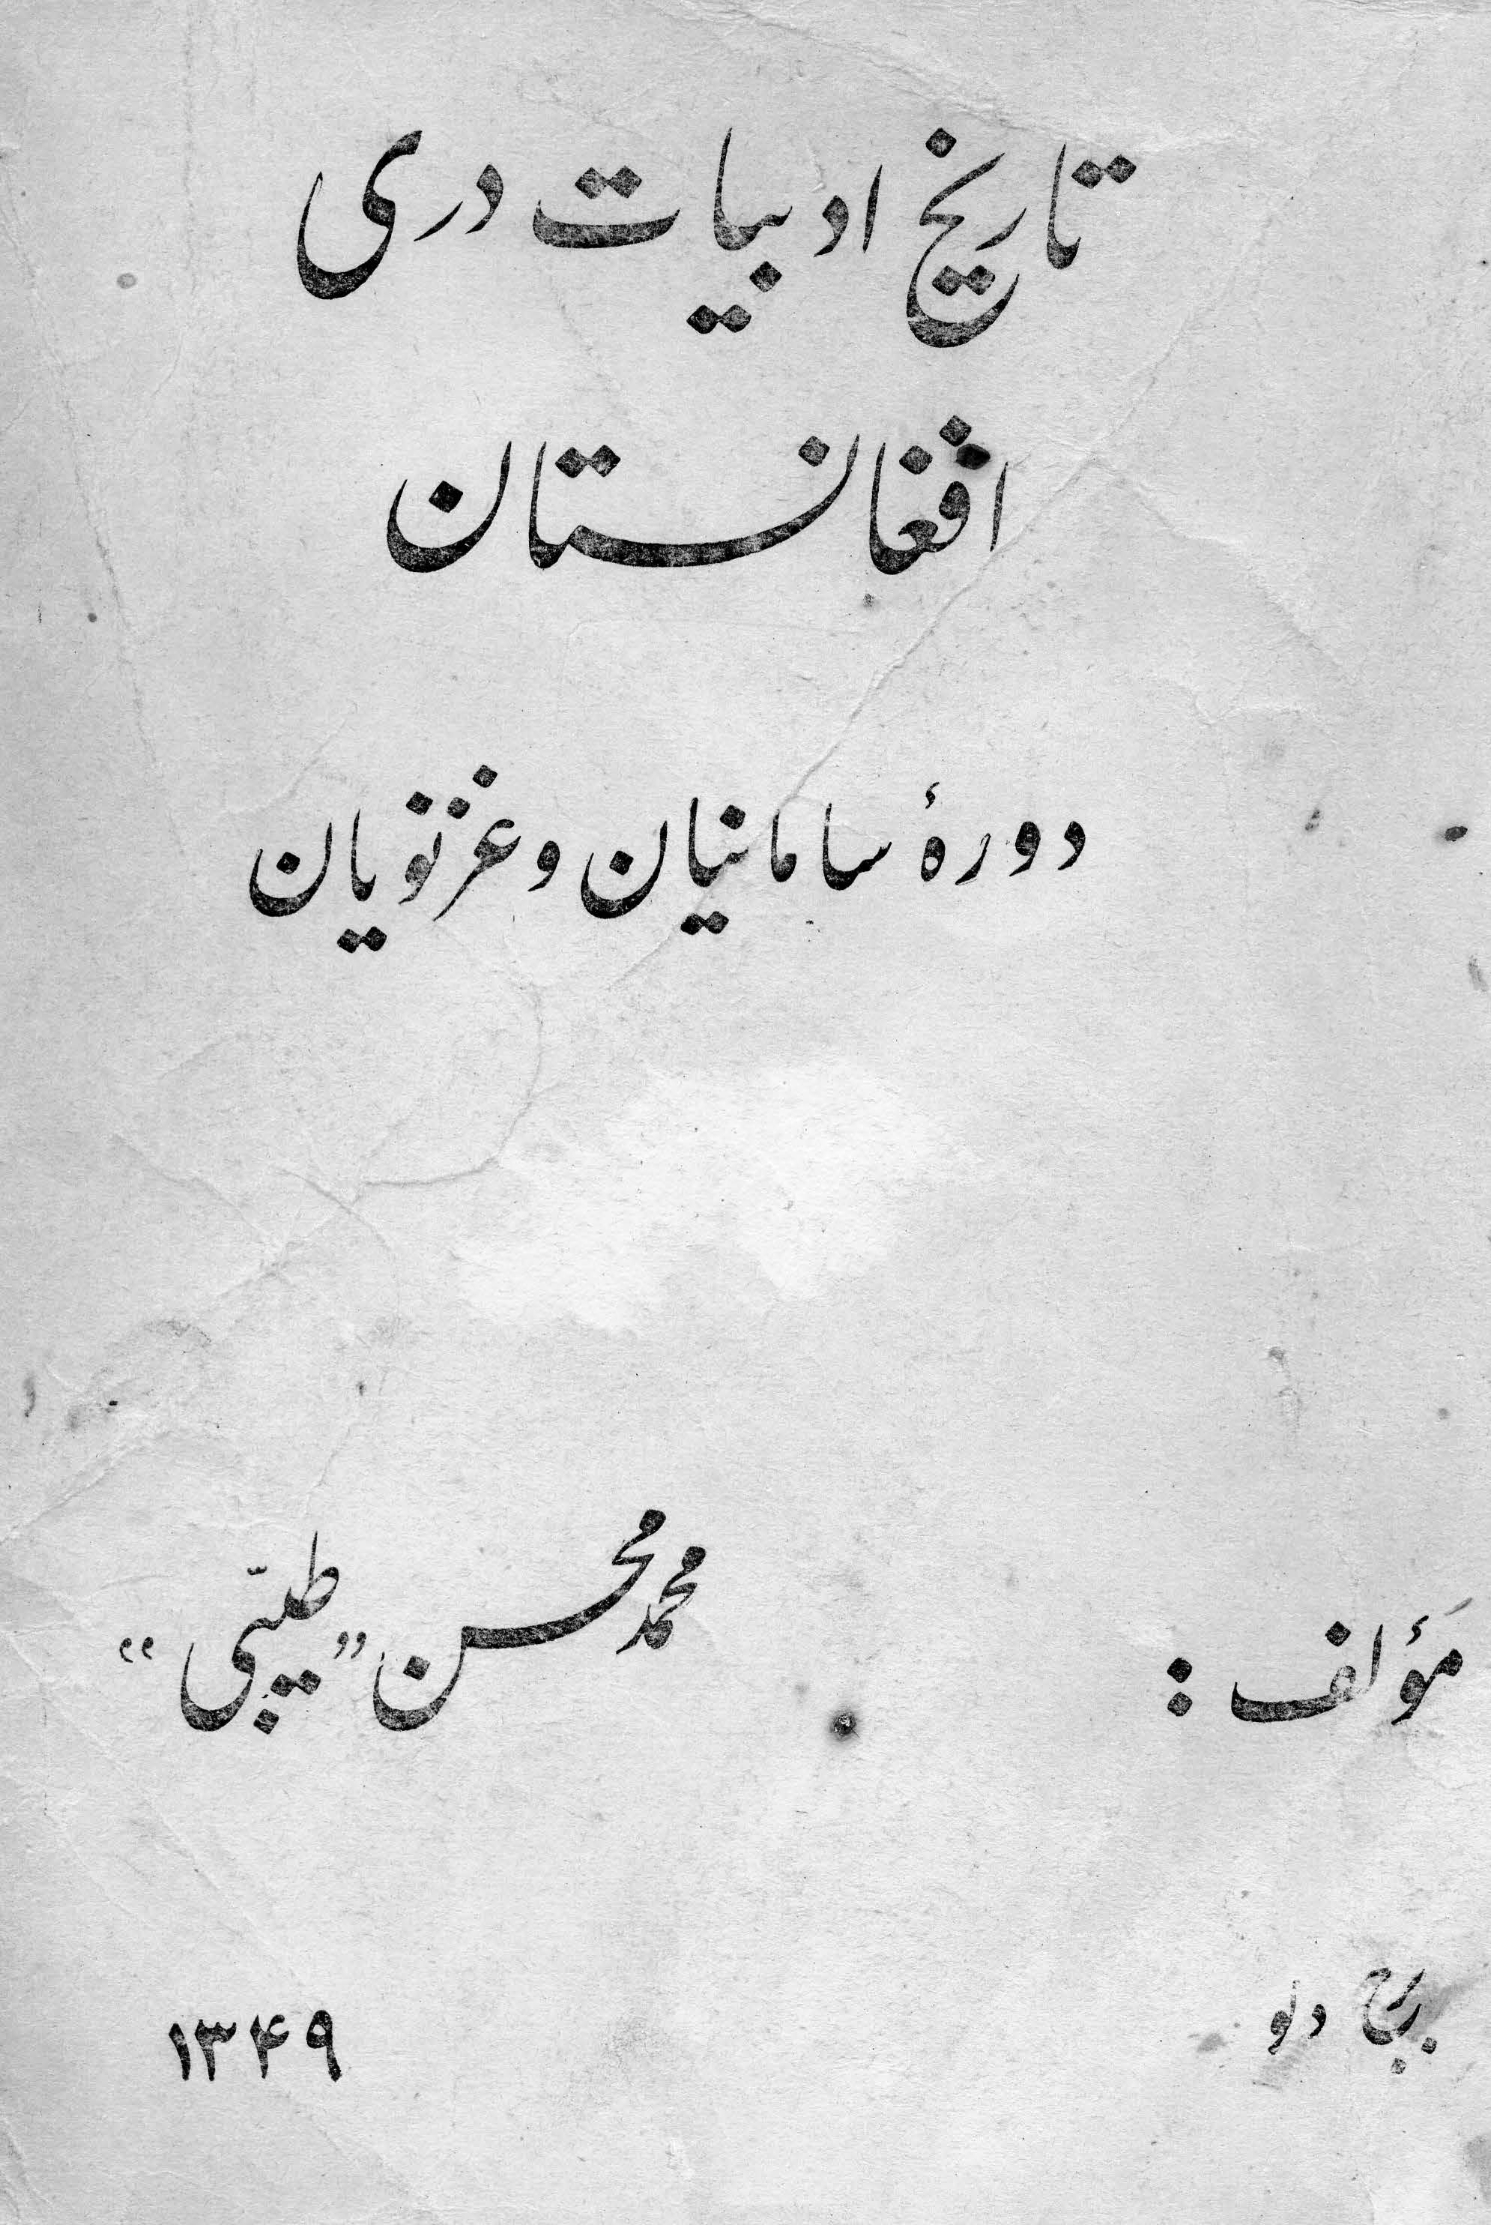 تاریخ ادبیات دری
افغانستان
دورهٔ سامانیان و غزنویان
مؤلف : محمد محسن «طیبّی»
برج دلو ۱۳۴۹